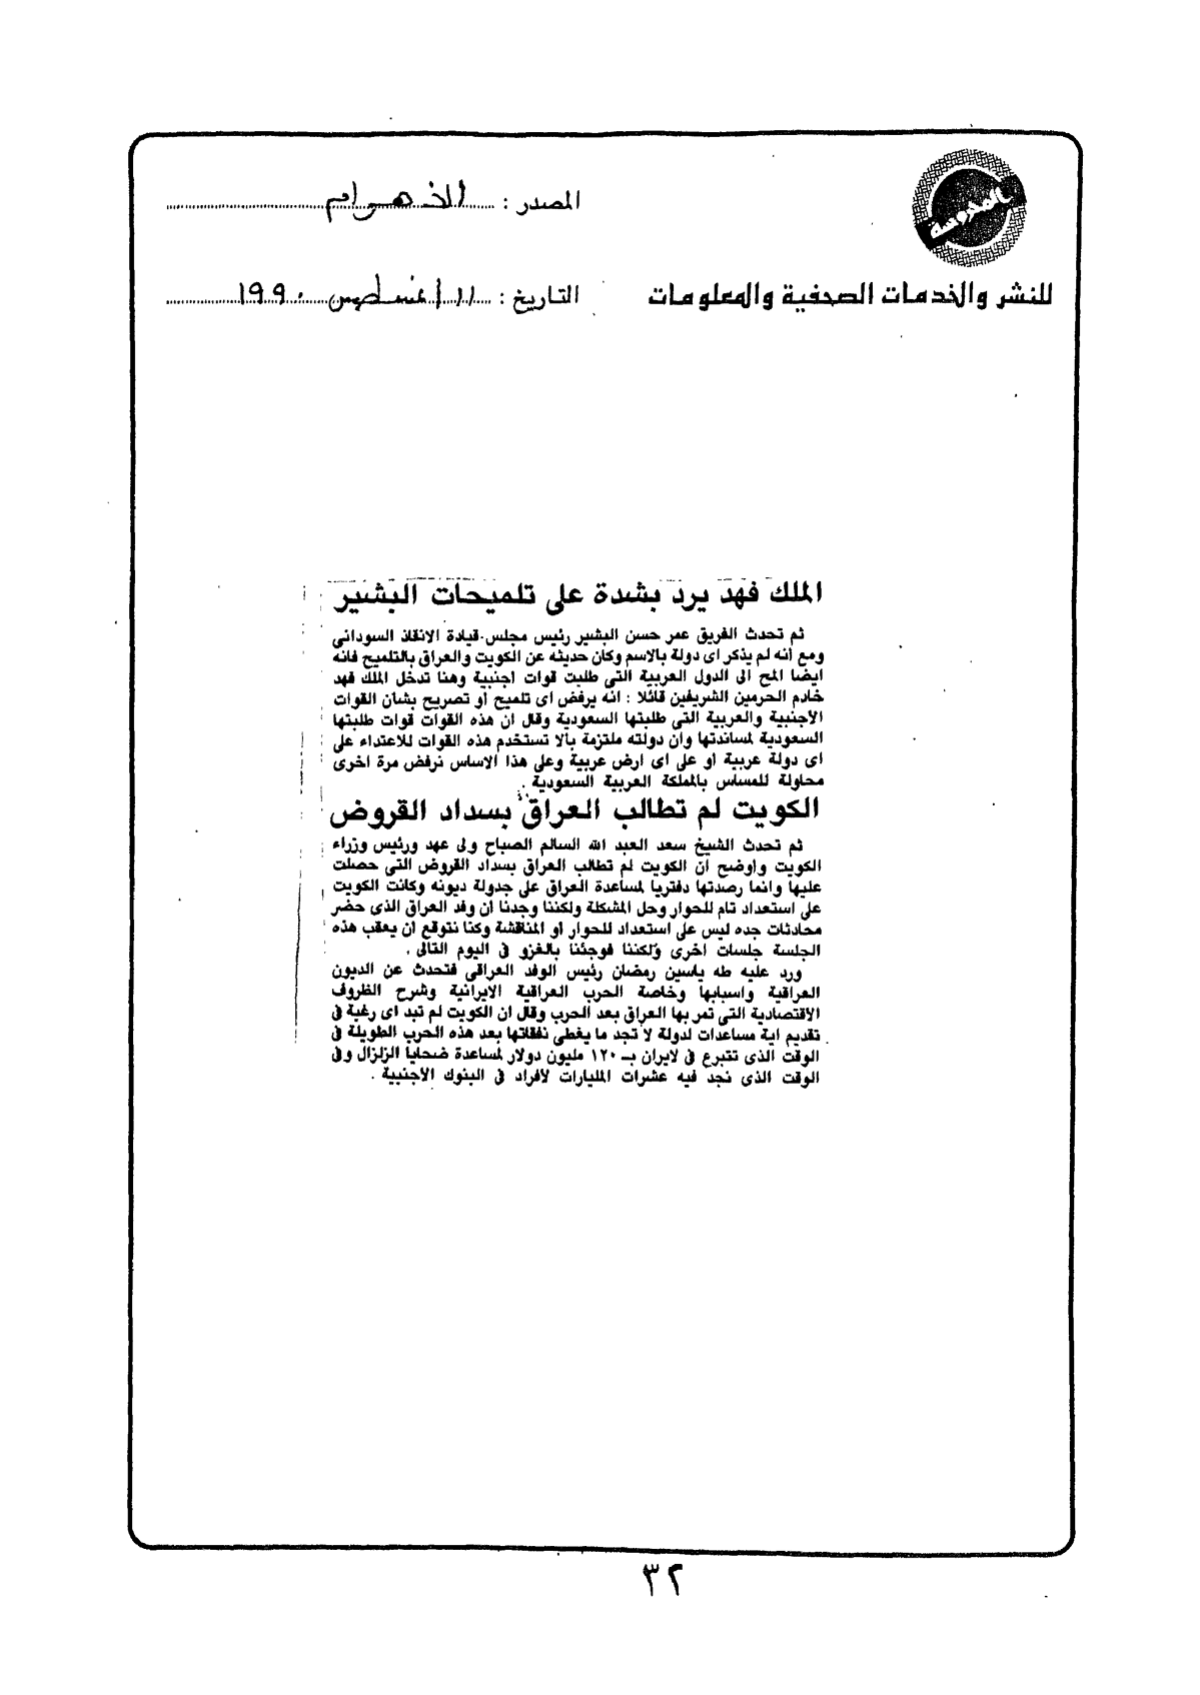 المحروسة
المصدر : الأهرام
للنشر والخدمات الصحفية والمعلومات
التاريخ : ١١ أغسطس ١٩٩٠
الملك فهد يرد بشدة على تلميحات البشير
ثم تحدث الفريق عمر حسن البشير رئيس مجلس قيادة الانقاذ السودانى
ومع انه لم يذكر اى دولة بالاسم وكان حديثه عن الكويت والعراق بالتلميح فانه
ايضا المح الى الدول العربية التى طلبت قوات اجنبية وهنا تدخل الملك فهد
خادم الحرمين الشريفين قائلا : انه يرفض اى تلميح أو تصريح بشان القوات
الأجنبية والعربية التى طلبتها السعودية وقال ان هذه القوات قوات طلبتها
السعودية لمساندتها وان دولته ملتزمة بألا تستخدم هذه القوات للاعتداء على
اى دولة عربية او على اى ارض عربية وعلى هذا الاساس نرفض مرة اخرى
محاولة للمساس بالمملكة العربية السعودية .
الكويت لم تطالب العراق بسداد القروض
ثم تحدث الشيخ سعد العبد الله السالم الصباح ولى عهد ورئيس وزراء
الكويت وأوضح ان الكويت لم تطالب العراق بسداد القروض التى حصلت
عليها وانما رصدتها دفتريا لمساعدة العراق على جدولة ديونه وكانت الكويت
على استعداد تام للحوار وحل المشكلة ولكننا وجدنا ان وفد العراق الذى حضر
محادثات جده ليس على استعداد للحوار أو المناقشة وكنا نتوقع ان يعقب هذه
الجلسة جلسات اخرى ولكننا فوجئنا بالغزو فى اليوم التالى .
ورد عليه طه ياسين رمضان رئيس الوفد العراقى فتحدث عن الديون
العراقية واسبابها وخاصة الحرب العراقية الايرانية وشرح الظروف
الاقتصادية التى تمر بها العراق بعد الحرب وقال ان الكويت لم تبد اى رغبة فى
تقديم اية مساعدات لدولة لا تجد ما يغطى نفقاتها بعد هذه الحرب الطويلة فى
الوقت الذى تتبرع فى لايران بـ ١٢٠ مليون دولار لمساعدة ضحايا الزلزال وفى
الوقت الذى نجد فيه عشرات المليارات لأفراد فى البنوك الأجنبية .
٣٢